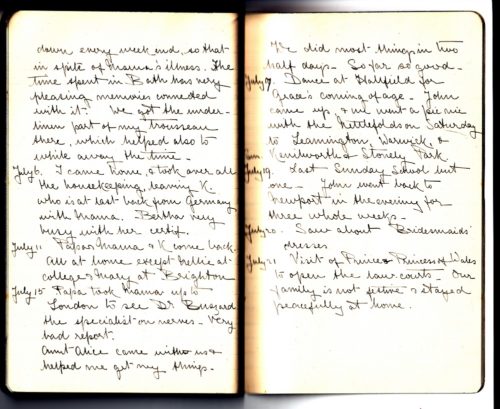 down every week end, so that
in spite of Mama's illness. The
time spent in Bath has very
pleasing memories connected
with it. We got the under-
linen part of my trousseau
there, which helped also to
while away the time.
July 6. I came home, & took over all
the housekeeping, leaving K.
who is at last back from Germany
with Mama. Bertha very
busy with her certif.
July 11 Papa & Mama & K come back.
All at home except Nellie at
college & Mary at Brighton
July 15 Papa took Mama up to
London to see Dr Buzzard
the specialist on nerves - Very
bad report.
Aunt Alice came with us &
helped me get my things.
We did most things in two
half days - So far so good -
July 17. Dance at Hallfield for
Grace's coming of age - John
came up, & we went a picnic
with the Nettlefolds on Saturday
to Leamington, Warwick, &
Kenilworth & Stonely Park.
July 19. Last Sunday School but
one - John went back to
Newport in the evening for
three whole weeks -
July 20. Saw about Bridesmaids'
dresses
July 21 Visit of Prince & Princess of Wales
to open the law courts. Our
family is not festive & stayed
peacefully at home.